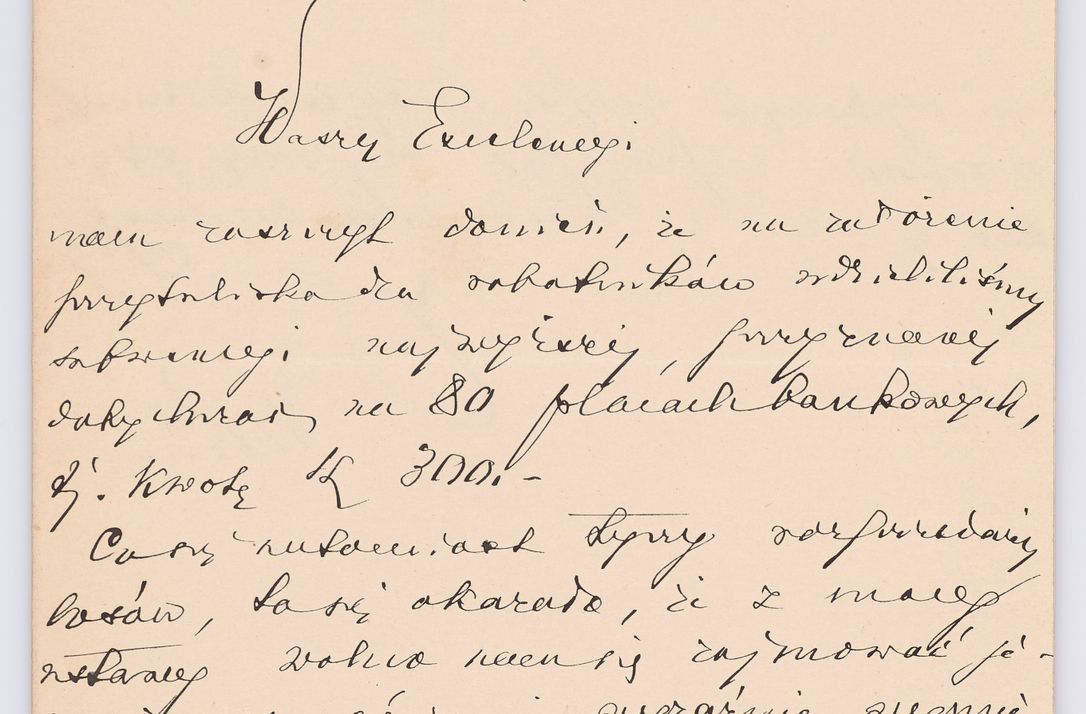 Waszej Excelencyi
mam zaszczyt donieść, że na założenie
przytuliska dla robotników udzieliliśmy
subwencyi najwyższej, przyznanej
dotychczas, na 80 placach bankowych,
tj. Kwotę K 300.-
Co się natomiast tyczy rozsprzedaży
losów, to się okazało, że z mocy
ustawy wolno nam się zajmować je-